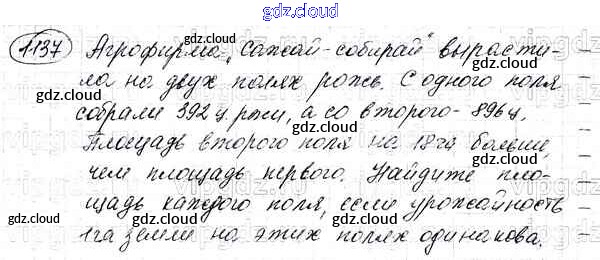 gdz.cloud
1137 Агрофирма „Сажай-собирай" вырасти-
ла на двух полях рожь. С одного поля
собрали 392 ц ржи, а со второго - 896 ц.
Площадь второго поля на 18 га больше,
чем площадь первого. Найдите пло-
щадь каждого поля, если урожайность
1 га земли на этих полях одинакова.